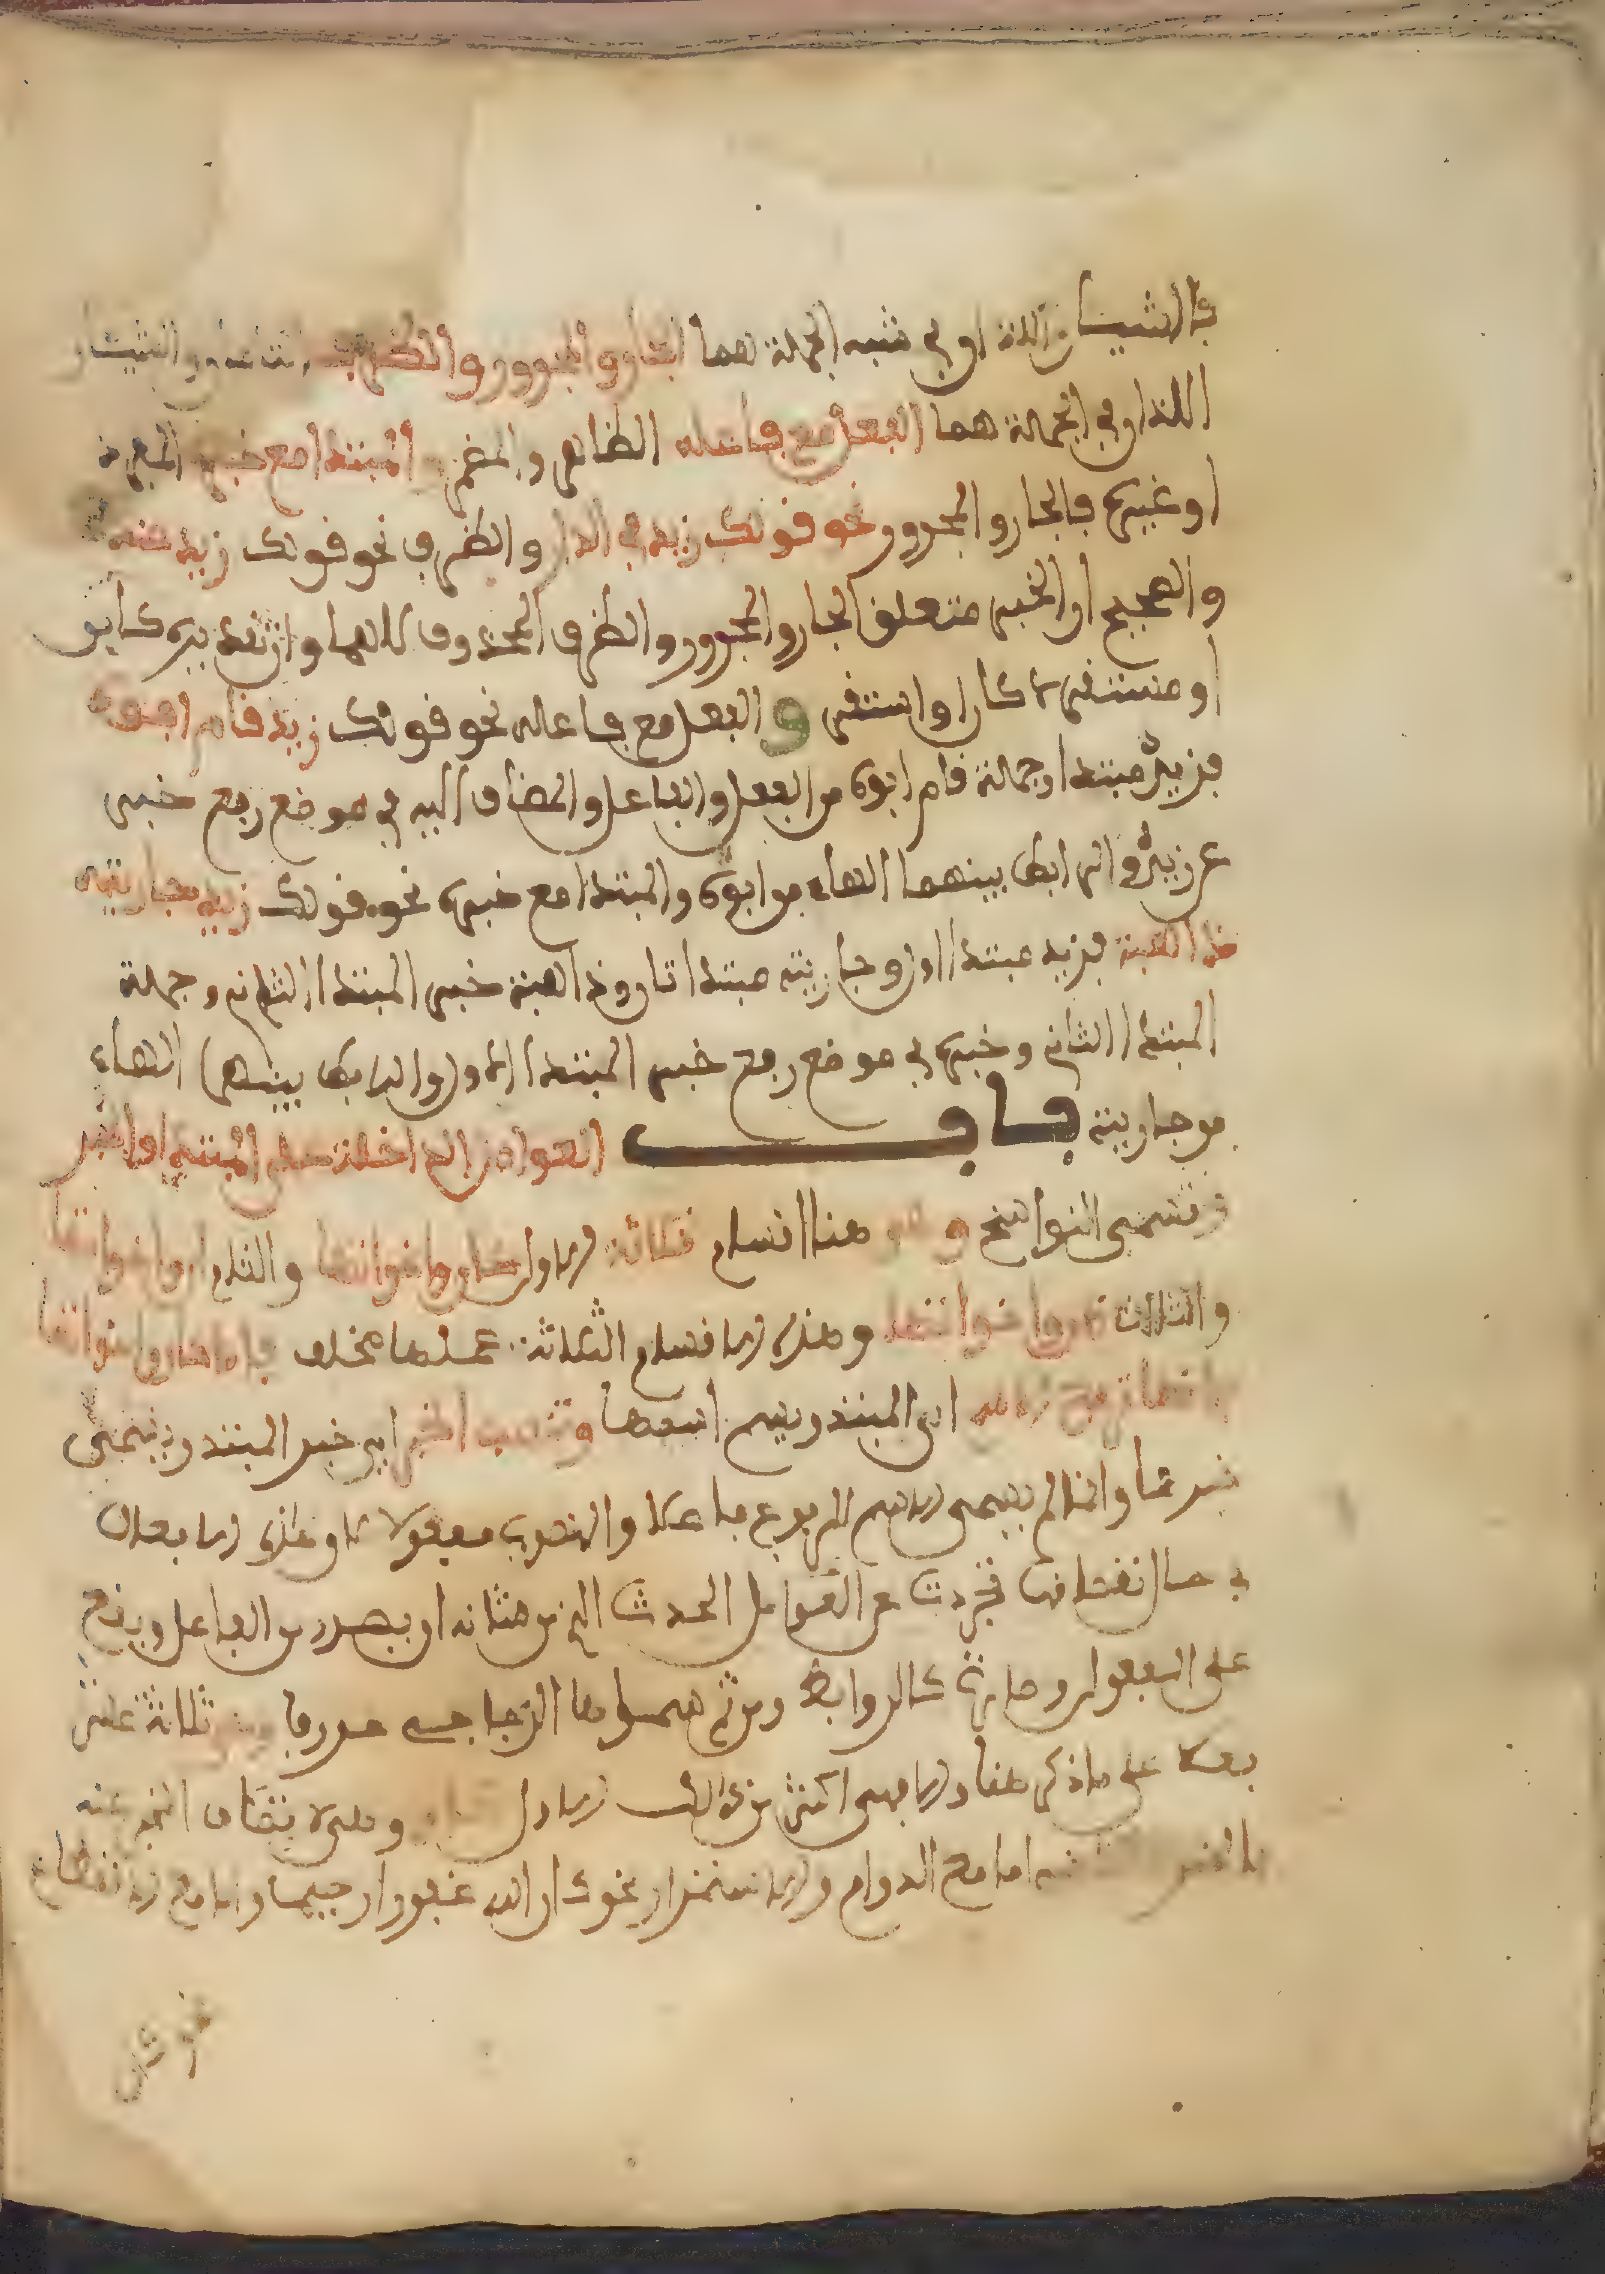 فالشيئان اللذان في شبه الجملة هما الجار والمجرور والظرف التامان والشيئان
اللذان في الجملة هما الفعل مع فاعله الظاهر والمضمر والمبتدا مع خبره المفرد
او غيره فالجار والمجرور نحو قولك زيد في الدار والظرف نحو قولك زيد عندك
والصحيح ان الخبر متعلق الجار والمجرور والظرف المحذوف لا هما وان تقديره كاين
او مستقر لا كان او استقر والفعل مع فاعله نحو قولك زيد قام ابوه
فزيد مبتدا وجملة قام ابوه من الفعل والفاعل والمضاف اليه في موضع رفع خبر
عن زيد والرابط بينهما الهاء من ابوه والمبتدا مع خبره نحو قولك زيد جاريته
ذاهبة فزيد مبتدا اول وجاريته مبتدا ثان وذاهبة خبر المبتدا الثاني وجملة
المبتدا الثاني وخبره في موضع رفع خبر المبتدا الاول والرابط بينهما الهاء
من جاريته باب العوامل الداخلة على المبتدا والخبر
وتسمى النواسخ وهي هنا اقسام ثلاثة الاول كان واخواتها والثاني ان واخواتها
والثالث ظن واخواتها وهذه الاقسام الثلاثة عملها مختلف فاما كان واخواتها
فانها ترفع الاسم اي المبتدا ويسمى اسمها وتنصب الخبر اي خبر المبتدا ويسمى
خبرها وانما لم يسمى الاسم المرفوع فاعلا والمنصوب مفعولا لان هذه الافعال
في حال نقصانها تجردت عن العوامل الحدث الذي من شانه ان يصدر من الفاعل ويقع
على المفعول وصارت كالروابط ومن ثم سماها الزجاجي حروفا وهي ثلاثة عشر
فعلا على ما ذكر هنا والا فهي اكثر من ذلك الاول كان وهي لاتصاف المخبر عنه
بالخبر اما مع الدوام والاستمرار نحو كان الله غفورا رحيما واما مع الانقطاع